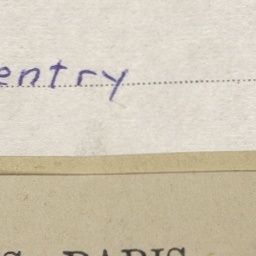 entry
PARIS